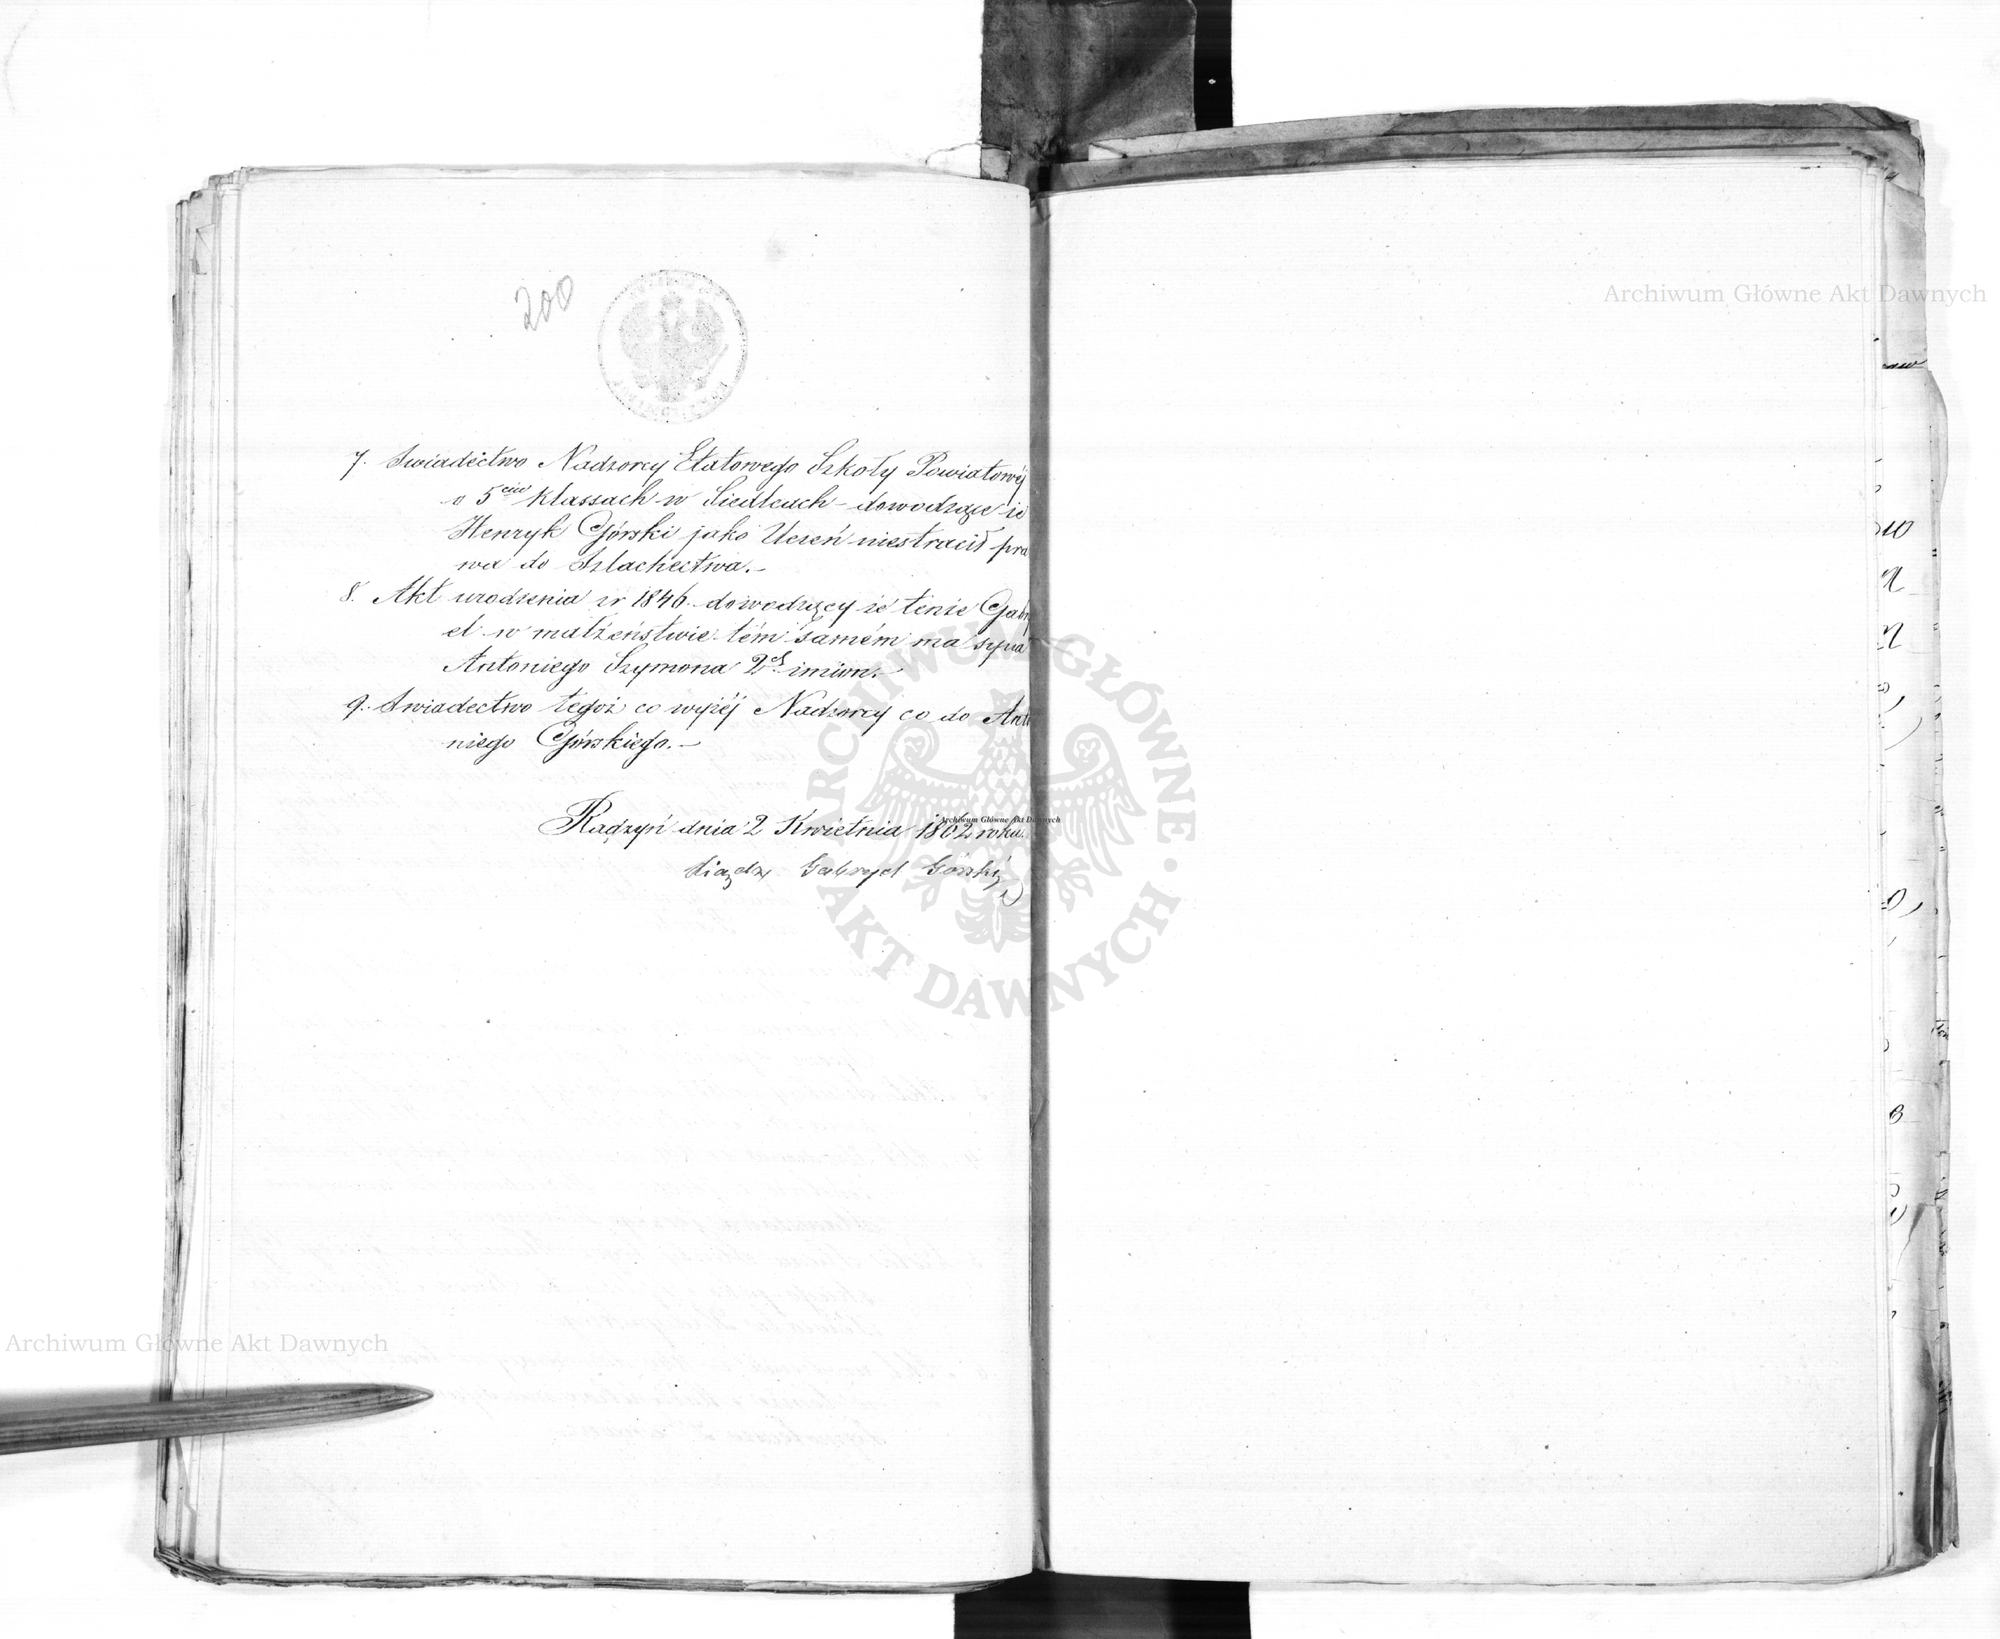 200
7. Swiadectwo Nadzorcy Etatowego Szkoły Powiatowéj
o 5ciu klassach w Siedlcach – dowodzące że
Henryk Górski jako Uczeń niestracił pra
wa do Szlachectwa. –
8. Akt urodzenia z r 1846. dowodzący że tenże Gabry
el w małżeństwie tém samém ma syna
Antoniego Szymona 2ch imion. –
9. Swiadectwo tegoż co wyżéj Nadzorcy co do Anto
niego Górskiego. –
Radzyń dnia 2 Kwietnia 1862 roku.
Gabryel Górski
Archiwum Główne Akt Dawnych
Archiwum Główne Akt Dawnych
Archiwum Główne Akt Dawnych
ARCHIWUM GŁÓWNE AKT DAWNYCH